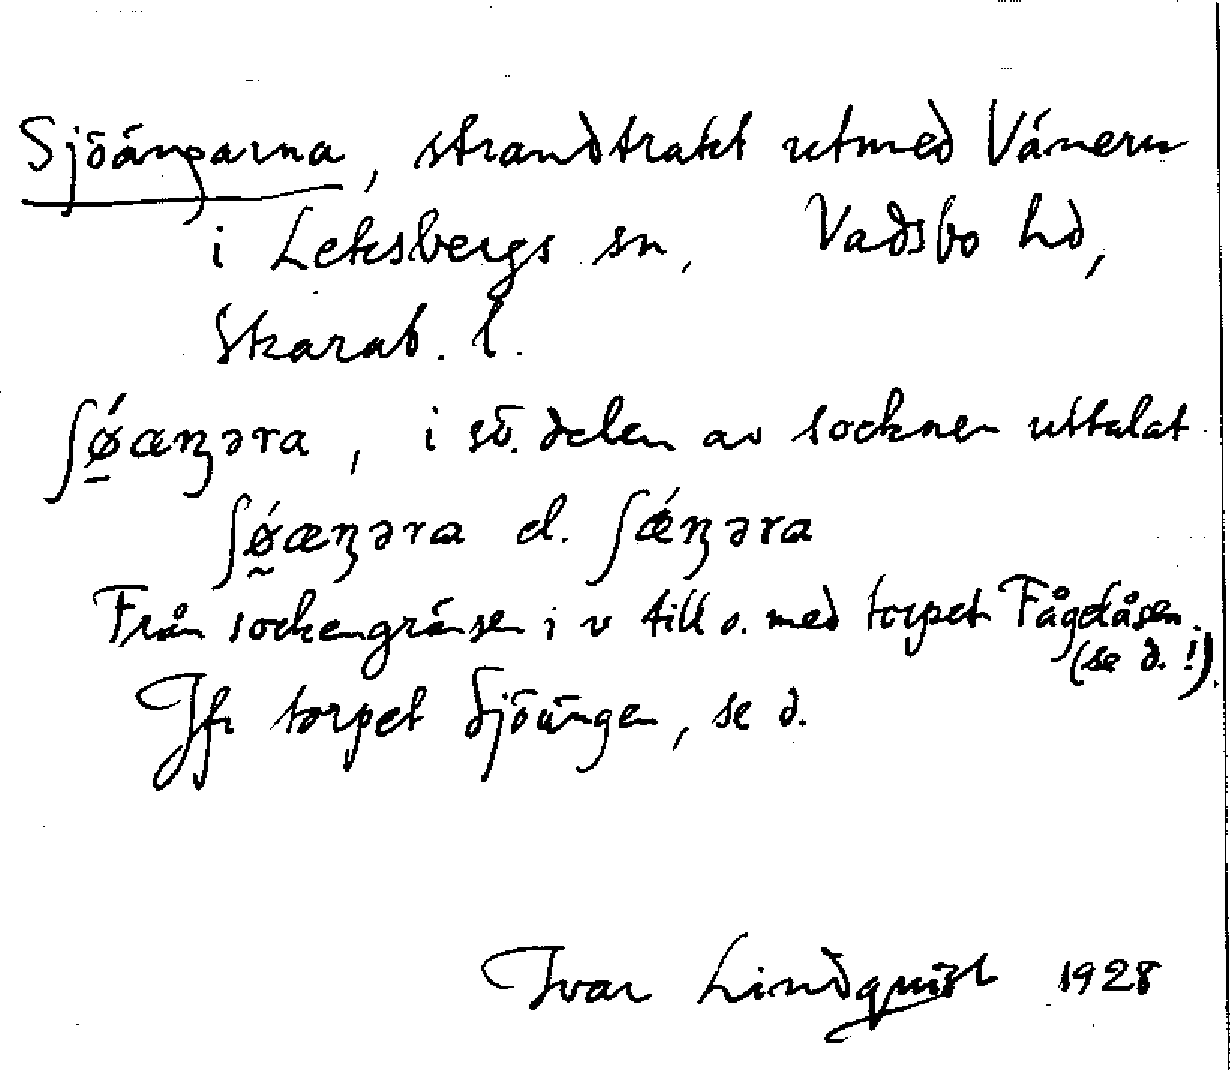 Sjöängarna, strandtrakt utmed Vänern
i Leksbergs sn, Vadsbo hd,
Skarab. l.
ʃǿ̠æŋəra, i sö. delen av socknen uttalat
ʃǿ̰æŋəra el. ʃǽŋəra
Från sockengränsen i v till o. med torpet Fågelåsen.
(se d.!).
Jfr torpet Sjöängen, se d.
Ivar Lindquist 1928